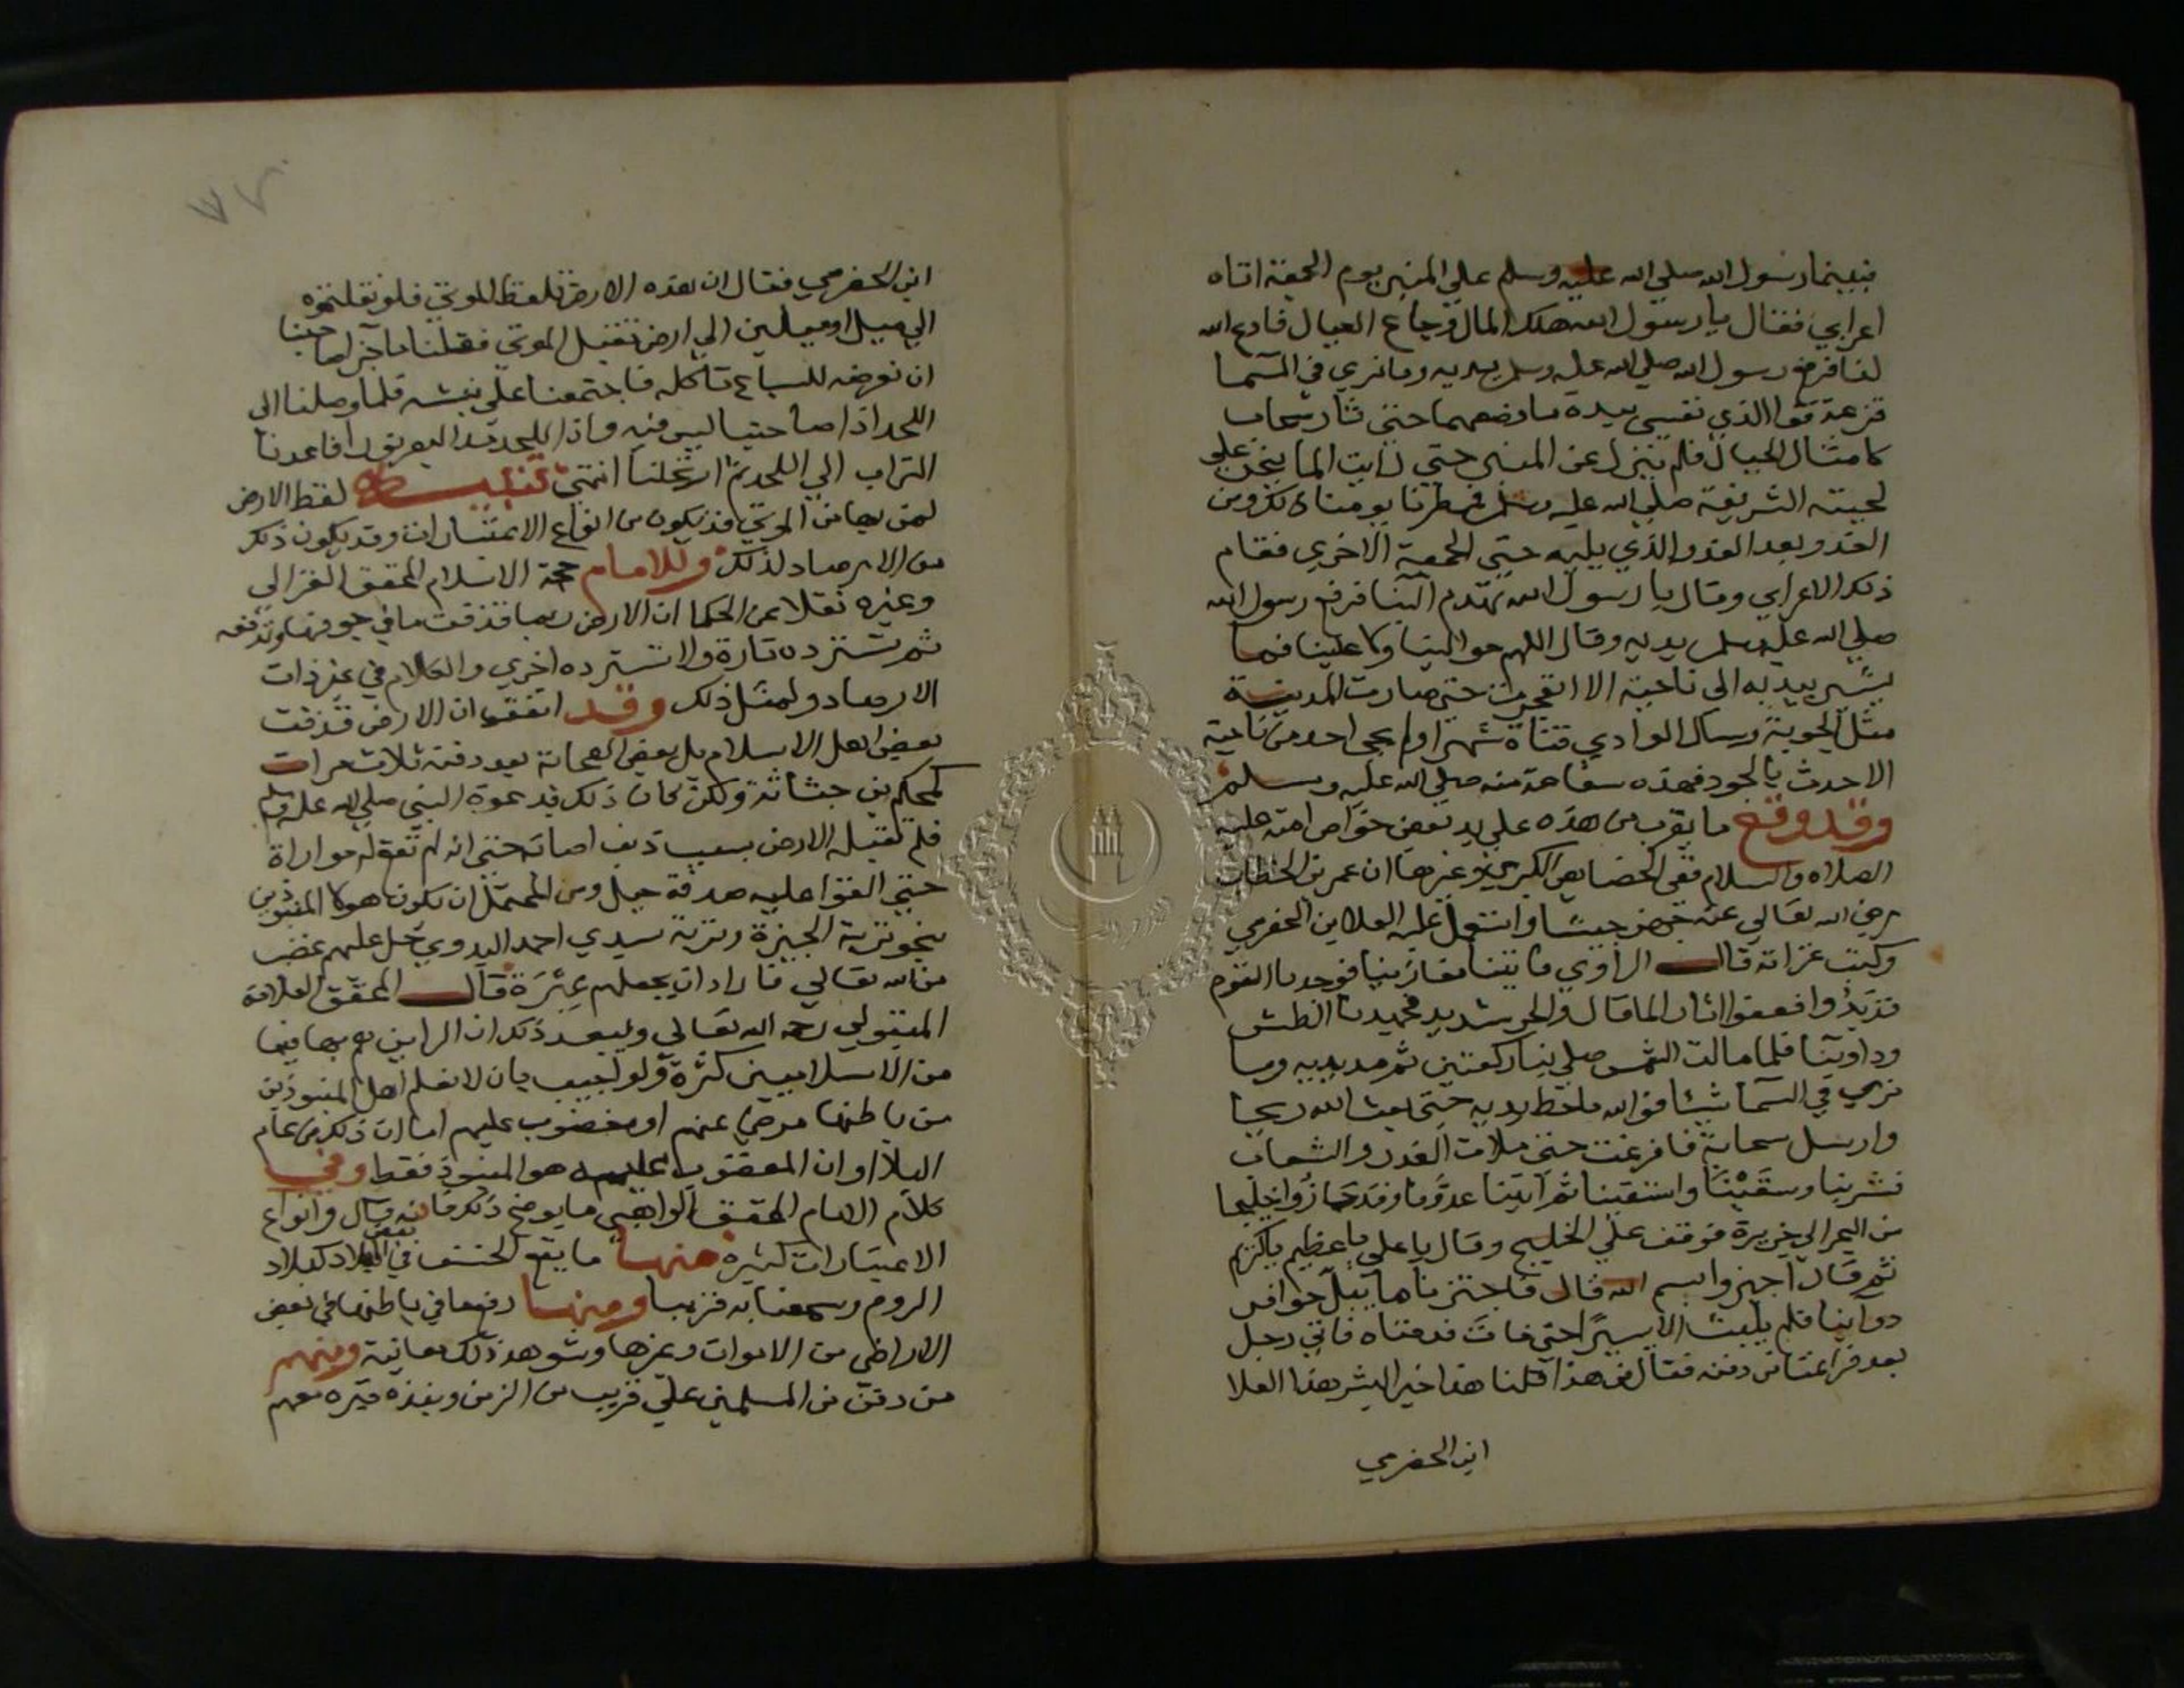 فبينما رسول الله صلي الله عليه وسلم علي المنبر يوم الجمعة اتاه
اعرابي فقال يا رسول الله هلك المال وجاع العيال فادع الله
لنا فرفع رسول الله صلي الله عليه وسلم يديه وما نري في السما
قزعة فوا الذي نفسي بيده ما وضعهما حتي ثار سحاب
كامثال الجبال فلم ينزل عن المنبر حتي رايت الما ينحدر علي
لحيته الشريفة صلي الله عليه وسلم فمطرنا يومنا ذلك ومن
الغد وبعد الغد والذي يليه حتي الجمعة الاخري فقام
ذلك الاعرابي وقال يا رسول الله تهدم البنا فرفع رسول الله
صلي الله عليه وسلم يديه وقال اللهم حوالينا ولا علينا فما
يشير بيديه الي ناحية الا انفجرت حتي صارت المدينة
مثل الجوبة وسال الوادي قناة شهرا ولم يجي احد من ناحية
الا حدث بالجود فهذه شفاعة منه صلي الله عليه وسلم
وقد وقع ما يقرب من هذه علي يد بعض خواص امته عليه
الصلاه والسلام ففي الخصايص الكبري وغيرها ان عمر بن الخطاب
رضي الله تعالي عنه جهز جيشا واستعمل عليه العلا بن الحضرمي
وكنت غزاته قال الراوي فاتينا مغازينا فوجدنا القوم
قد بدوا فعفوا اثار الما قال والحر شديد فجهدنا العطش
ودوابنا فلما مالت الشمس صلي بنا ركعتين ثم مد يديه وما
نري في السما شيئا فوالله ما حط يديه حتي بعث الله ريحا
وارسل سحابة فافرغت حتي ملات الغدر والشعاب
فشربنا وسقينا واستقينا ثم اتينا عدونا وقد جازوا خليجا
من البحر الي جزيرة فوقف علي الخليج وقال يا علي يا عظيم يا كريم
ثم قال اجيزوا بسم الله قال فاجتزنا ما يبل حوافر
دوابنا فلم يلبث الا يسيرا حتي مات فدفناه فاتي رجل
بعد فراغنا من دفنه فقال من هذا فقلنا هذا خير البشر هذا العلا
ابن الحضرمي
ابن الحضرمي فقال ان هذه الارض تلفظ الموتي فلو نقلتموه
الي ميل او ميلين الي ارض تقبل الموتي فقلنا ما جزا صاحبنا
ان نعرضه للسباع تاكله فاجتمعنا علي نبشه فلما وصلنا الي
اللحد اذا صاحبنا ليس فيه واذا اللحد مد البصر نورا فاعدنا
التراب الي اللحد ثم ارتحلنا انتهي تنبيه لفظ الارض
لمن بها من الموتي قد يكون من انواع الاعتبارات وقد يكون ذلك
من الارصاد لذلك وللامام حجة الاسلام المحقق الغزالي
وغيره نقلا عن الحكما ان الارض ربما قذفت ما في جوفها وتدفعه
ثم تسترده تارة ولا تسترده اخري والكلام في غير ذات
الارصاد ولمثل ذلك وقد اتفق ان الارض قذفت
بعض اهل الاسلام بل بعض الصحابة بعد دفنه ثلاث مرات
كمحكم بن جثامة ولكن كان ذلك بدعوة النبي صلي الله عليه وسلم
فلم تقبله الارض بسبب ذنب اصابه حتي انه لم تقع له مواراة
حتي القوا عليه صدفة جبل ومن المحتمل ان يكون هولا المنبوذين
بنحو تربة الجيزة وتربة سيدي احمد البدوي حل عليهم غضب
من الله تعالي فاراد ان يجعلهم عبرة قال المحقق العلامة
المتبولي رحمه الله تعالي ويبعد ذلك ان الرايين لهم بها فيها
من الاسلاميين كثرة ولو اجيب بان لا نعلم اهل المنبوذين
من باطنها مرضي عنهم او مغضوب عليهم امارات ذلك من عام
البلا او ان المغضوب عليهم هو المنبوذ فقط وفي
كلام الامام المحقق الواهبي ما يوضح ذلك فانه قال وانواع
الاعتبارات كثيرة منها ما يقع الخسف في بعض البلاد كبلاد
الروم وسمعنا به قريبا ومنها رفع ما في باطنها في بعض
الاراضي من الاموات وغيرها وشوهد ذلك معاينة ومنهم
من دفن من المسلمين علي قريب من الزمن وبنذه قبره معهم